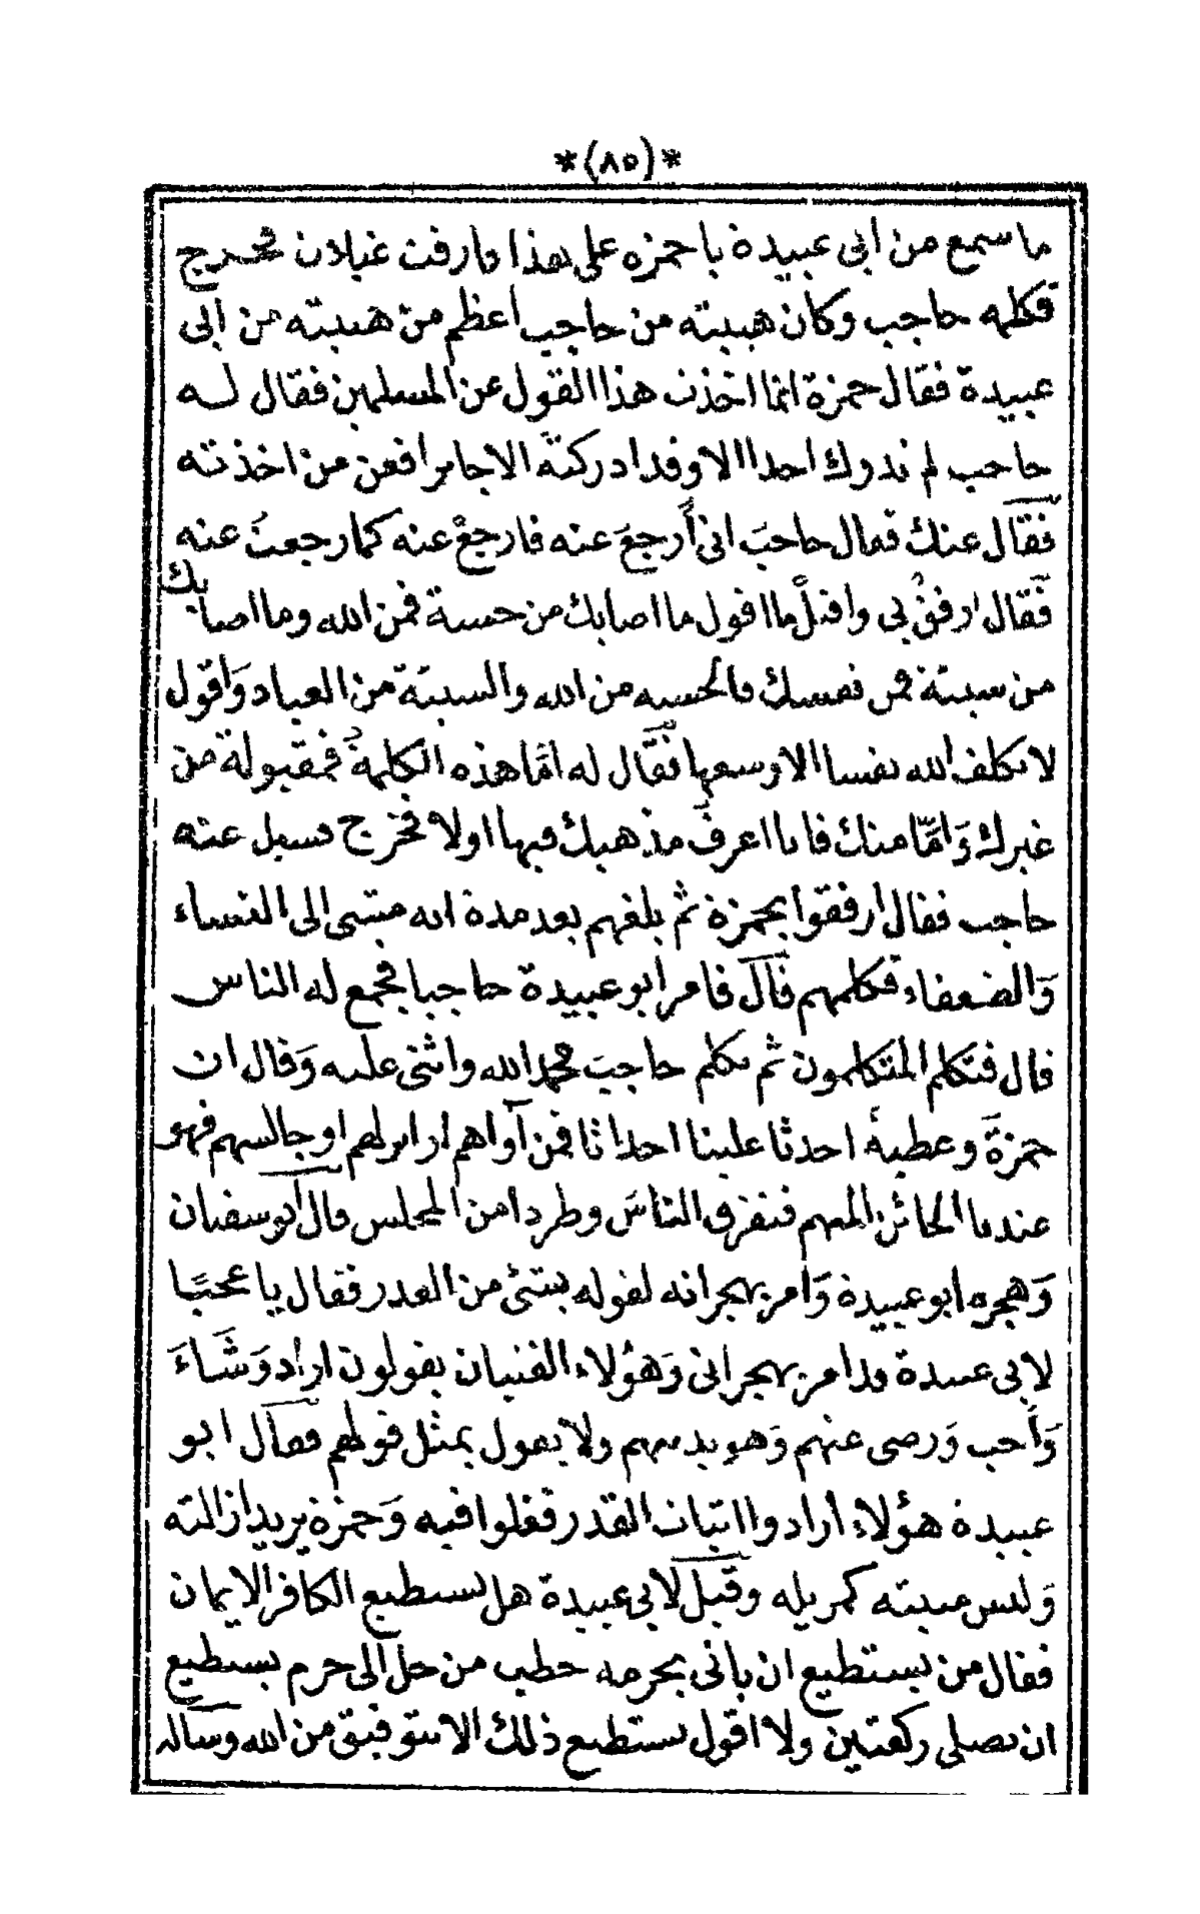 *(٨٥)*
ما سمع من ابى عبيدة يا حمزه على هذا فارقت غيلان فخرج
فكلمه حاجب وكان هيبته من حاجب أعظم من هيبته من ابى
عبيدة فقال حمزة انما اخذت هذا القول عن المسلمين فقال له
حاجب لم تدرك احدا الا وقد ادركته الا جابرا فعن من اخذته
فقال عنك فقال حاجب انى أرجع عنه فارجع عنه كما رجعت عنه
فقال ارفق بى واقبل ما اقول ما اصابك من حسنة فمن الله وما اصابك
من سيئة فمن نفسك فالحسنه من الله والسيئة من العباد وَاقول
لا يكلف الله نفسا الا وسعها فقال له امّا هذه الكلمة فمقبولة من
غيرك وَامّا منك فانا اعرف مذهبك فيها اولا فخرج فسيل عنه
حاجب فقال ارفقوا بحمزة ثم بلغهم بعد مدة انه مشى الى النساء
وَالضعفاء فكلمهم قال فامر ابو عبيدة حاجبا فجمع له الناس
قال فتكلم المتكلمون ثم تكلم حاجب فحمد الله واثنى عليه وَقال ان
حمزةَ وعطية احدثا علينا احداثا فمن آواهم او انزلهم او جالسهم فهو
عندنا الخائن المتهم فتفرق الناسَ وطردا من المجلس قال ابو سفيان
وَهجره ابو عبيدة وَامر بهجرانه لقوله بشئ من القدر فقال يا عجبًا
لابى عبيدة قد امر بهجرانى وَهؤلاء الفتيان يقولون اراد وَشَاءَ
وَأحب وَرضى عنهم وَهو يدنيهم ولا يقول بمثل قولهم فقال ابو
عبيدة هؤلاء أرادوا اثبات القدر فغلوا فيه وَحمزة يريد ازالته
وَليس مثبته كمزيله وقيل لابى عبيدة هل يستطيع الكافر الايمان
فقال من يستطيع ان ياتى بحزمة حطب من حل الى حرم يستطيع
ان يصلى ركعتين ولا اقول يستطيع ذلك الا بتوفيق من الله وساله